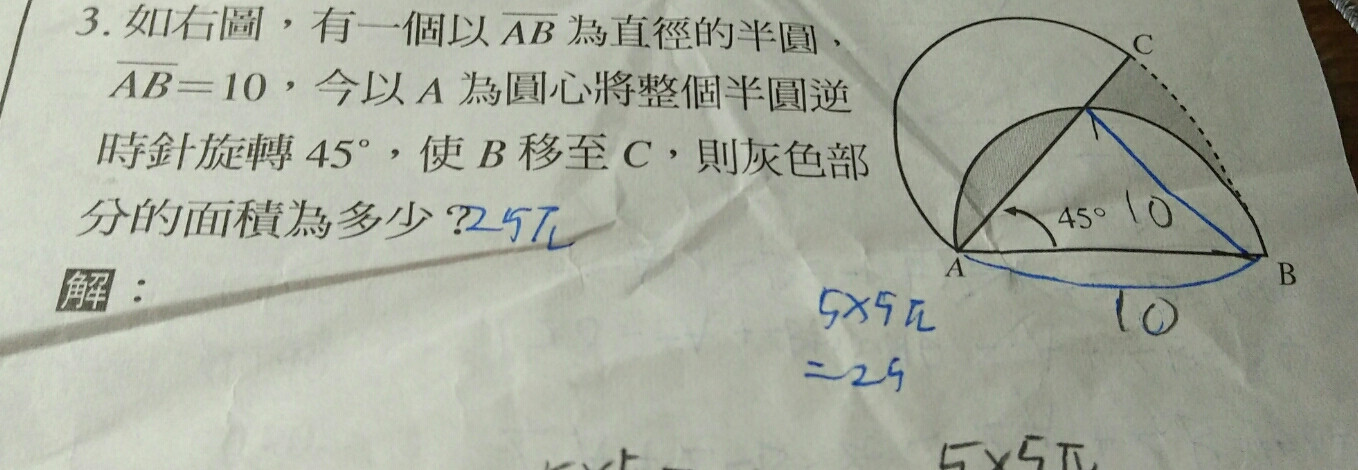 3. 如右圖，有一個以 AB 為直徑的半圓，
AB＝10，今以 A 為圓心將整個半圓逆
時針旋轉 45°，使 B 移至 C，則灰色部
分的面積為多少？25π
解：
C
45° 10
A
B
10
5×5π
=25
5×5π